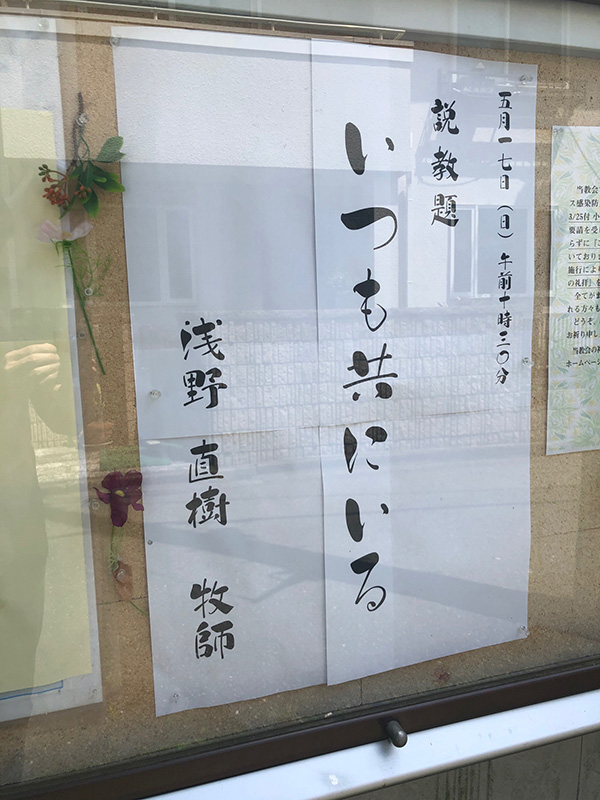 五月一七日（日）午前十時三〇分
説教題
いつも共にいる
浅野 直樹 牧師
当教会
ス感染防
3/25付 小
要請を受
らずに
いており
施行により
の礼拝』を
全てがま
れる方々も
どうぞ、
お祈り申し
当教会の
ホームペー